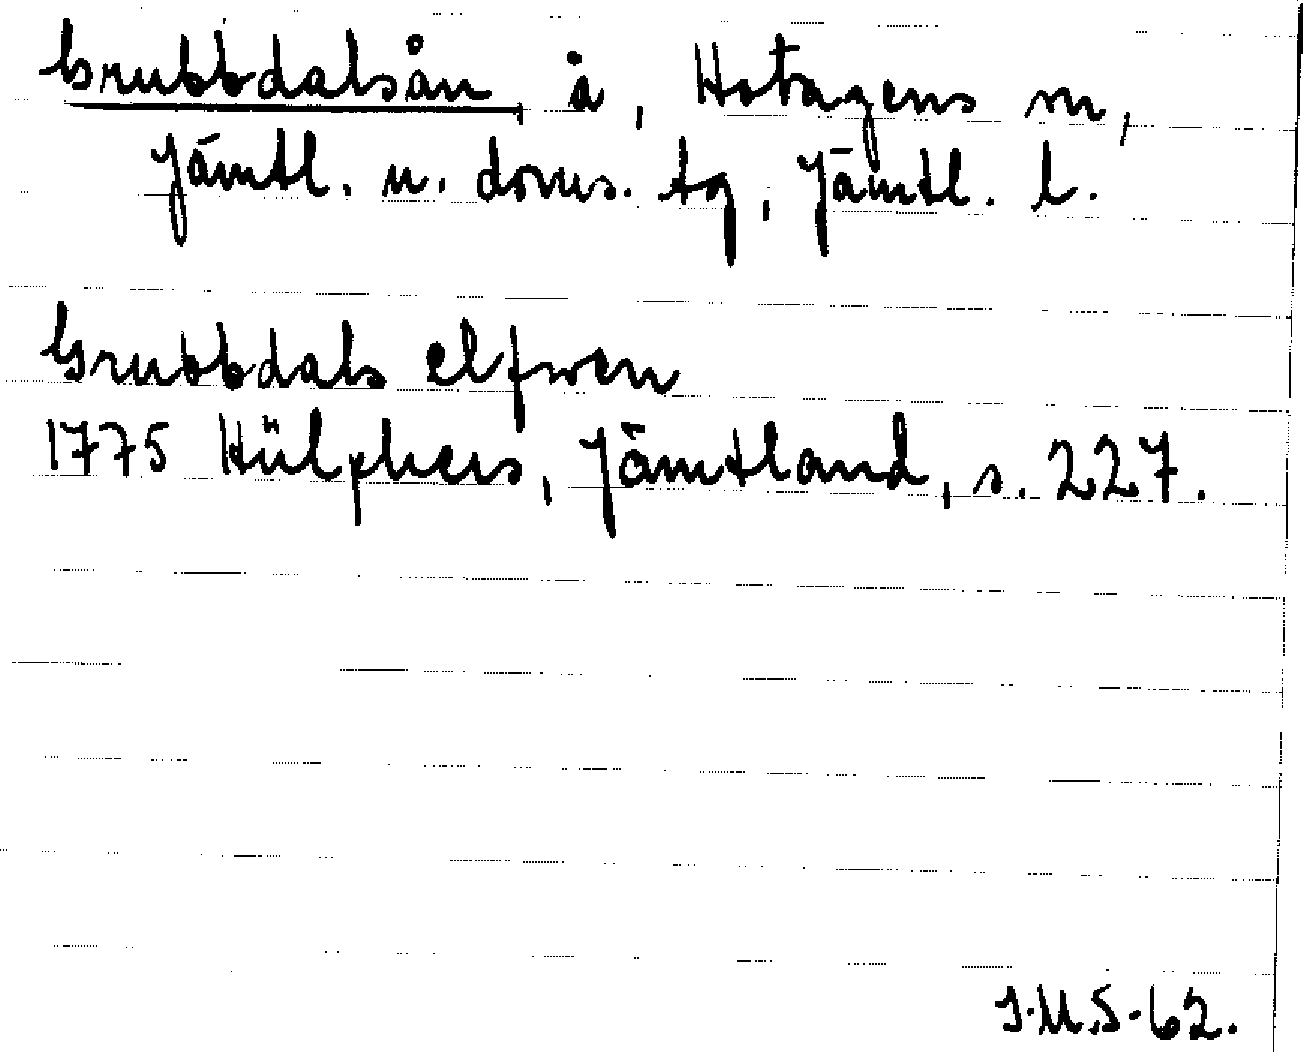 Grubbdalsån, å, Hotagens sn,
Jämtl. n. doms. tg, Jämtl. l.
Grubbdals elfwen
1775 Hülphers, Jämtland, s. 227.
I.M.S-62.